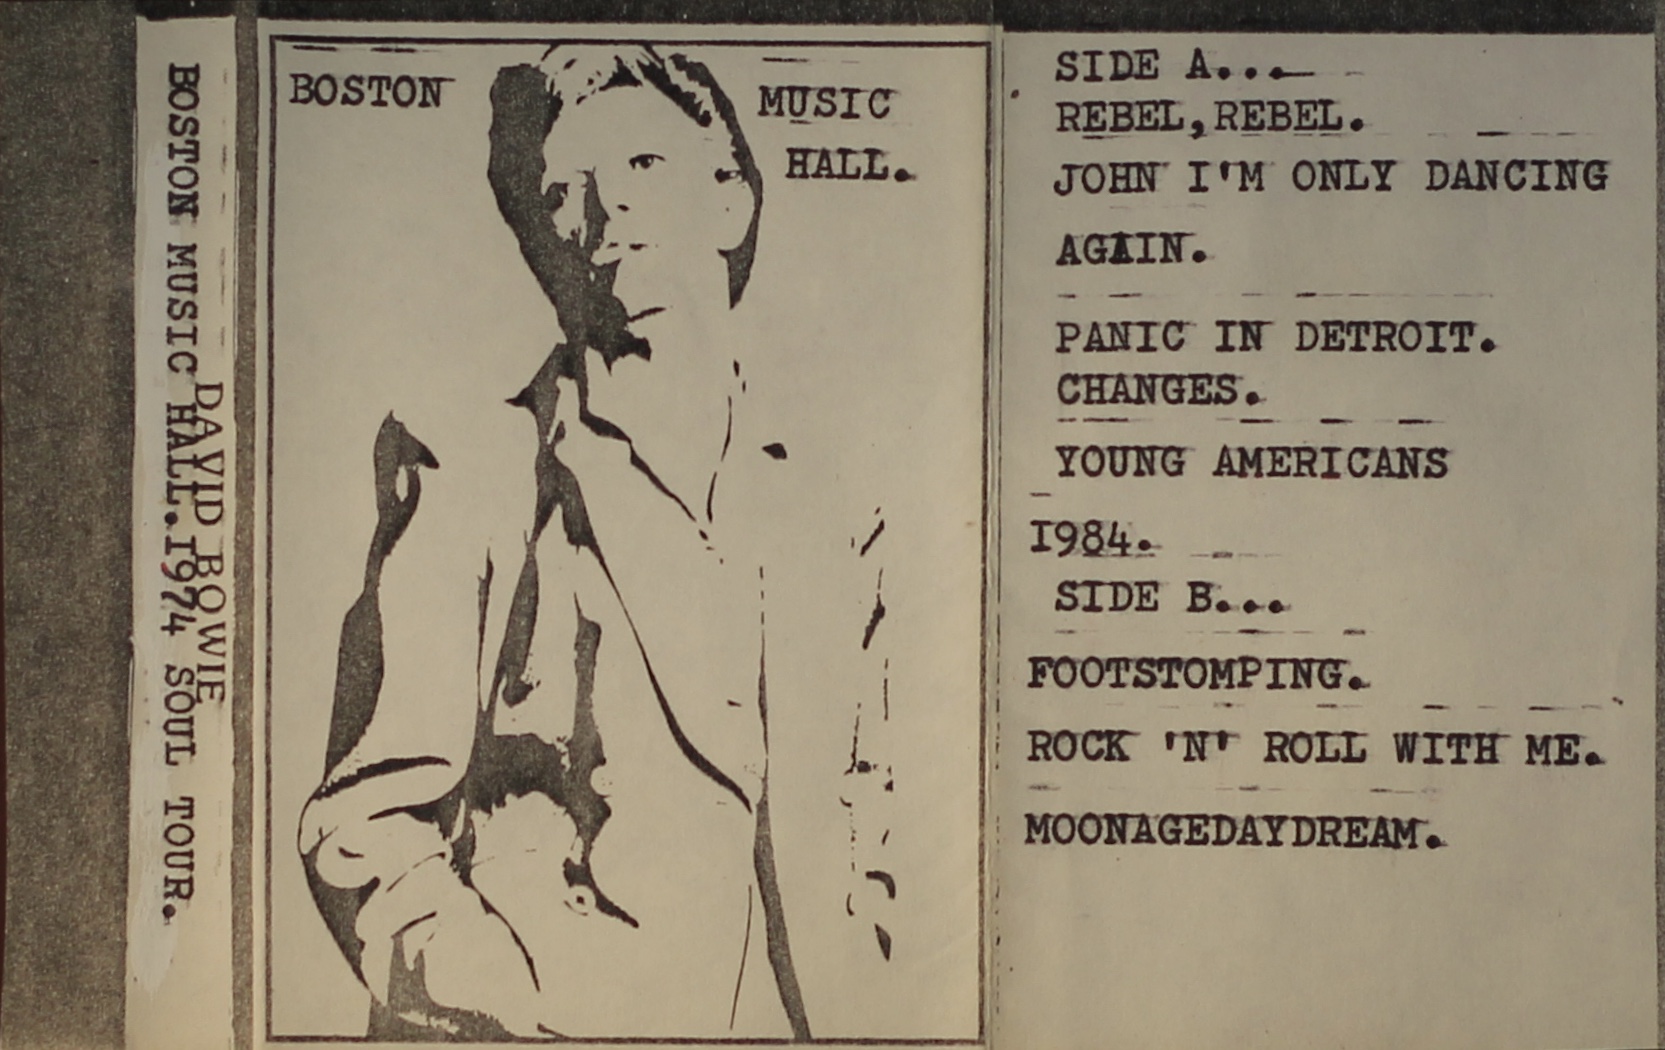 BOSTON MUSIC HALL.1974 SOUL TOUR.
DAVID BOWIE
BOSTON
MUSIC
HALL.
SIDE A...
REBEL,REBEL.
JOHN I'M ONLY DANCING
AGAIN.
PANIC IN DETROIT.
CHANGES.
YOUNG AMERICANS
1984.
SIDE B...
FOOTSTOMPING.
ROCK 'N' ROLL WITH ME.
MOONAGEDAYDREAM.